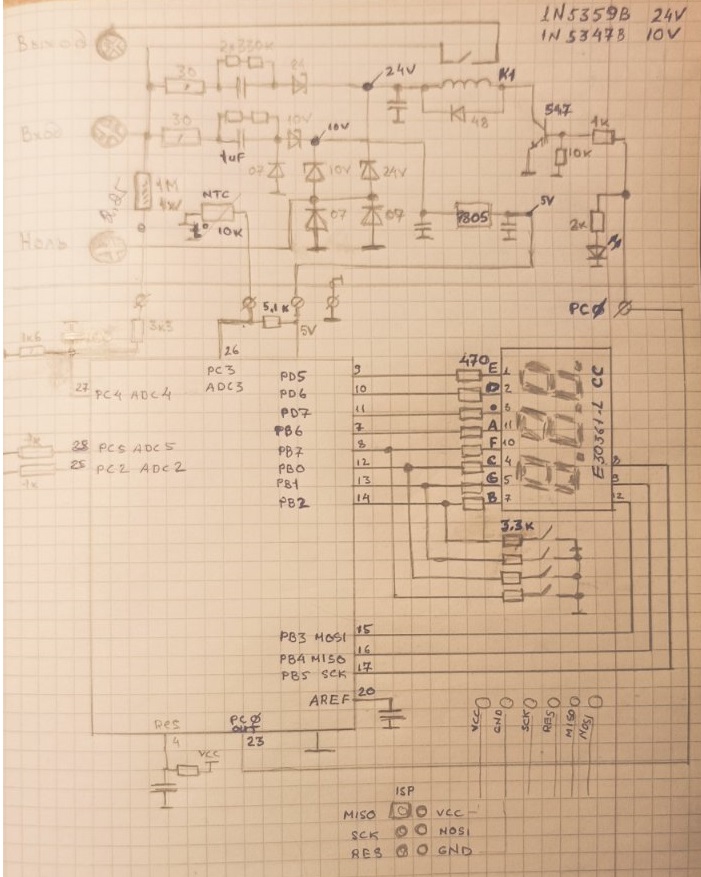 1N5359B 24V
1N5347B 10V
Выход
2x330k
30
24V
K1
Вход
30
10V
10V
48
547
1k
10K
1uF
07
10V
24V
1M
1W
NTC
t° 10K
07
07
7805
5V
2k
Ноль
3k3
5,1K
5V
PCØ
1k6
26
PC3
ADC3
27 PC4 ADC4
28 PC5 ADC5
25 PC2 ADC2
1k
PD5 9
PD6 10
PD7 11
PB6 7
PB7 8
PB0 12
PB1 13
PB2 14
470
E 1
D 2
A 11
F 10
C 4
G 5
B 7
E30361-L CC
8
9
12
3.3K
PB3 MOSI 15
PB4 MISO 16
PB5 SCK 17
AREF 20
Res
4
PCØ
OUT
23
VCC
VCC
GND
SCK
RES
MISO
MOSI
ISP
MISO VCC
SCK MOSI
RES GND